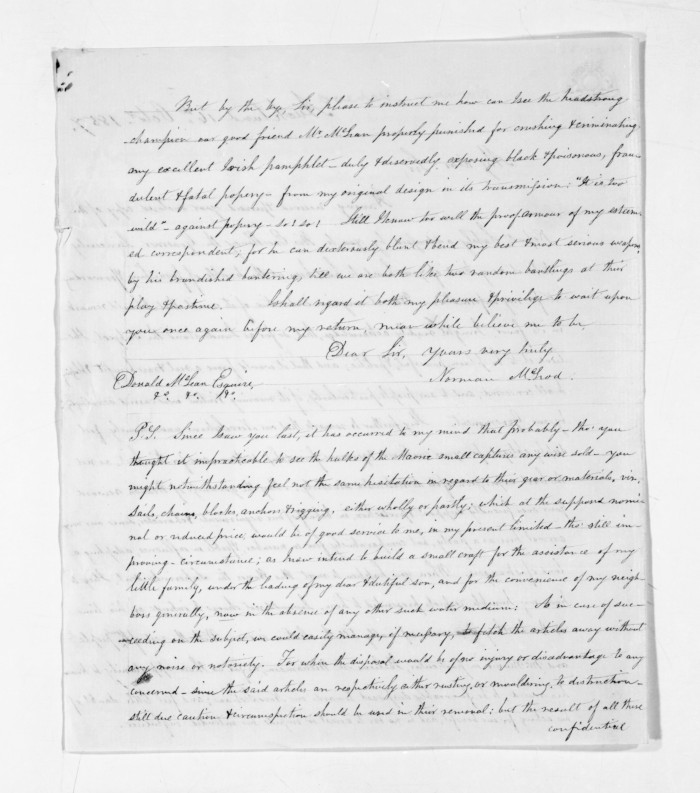 But by the by, Sir, please to instruct me how can I see the headstrong
champion our good friend Mr. McLean properly punished for crushing & criminating
my excellent Irish pamphlet - duly & deservedly exposing black & poisonous, frau-
dulent & fatal popery - from my original design in its transmission: "It is too
mild" - against popery - so! so! Still I know too well the proof armour of my esteem-
ed correspondent; for he can dexterously blunt & bend my best & most serious weapon,
by his brandished bantering, till we are both like two random bantlings at their
play & pastime. I shall regard it both my pleasure & privilege to wait upon
you once again before my return, mean while believe me to be
Dear Sir, yours very truly
Norman McLeod.
Donald McLean Esquire,
&c. &c. &c.
P.S. Since I saw you last, it has occurred to my mind that probably - tho' you
thought it impracticable to see the hulks of the Maorie small captures any wise sold - you
might notwithstanding feel not the same hesitation in regard to their gear or materials, viz,
Sails, chains, blocks, anchors & rigging, either wholly or partly; which at the supposed nomi-
nal or reduced price, would be of good service to me, in my present limited - tho' still im-
proving - circumstance; as I now intend to build a small craft for the assistance of my
little family, under the leading of my dear & dutiful son, and for the convenience of my neigh-
bors generally, now in the absence of any other such water medium: As in case of suc-
ceeding on the subject, we could easily manage, if necessary, to fetch the articles away without
any noise or notoriety. For when the disposal would be of no injury or disadvantage to any
concerned - since the said articles are respectively either rusting, or mouldering to destruction -
still due caution & circumspection should be used in their removal: but the result of all these
confidential